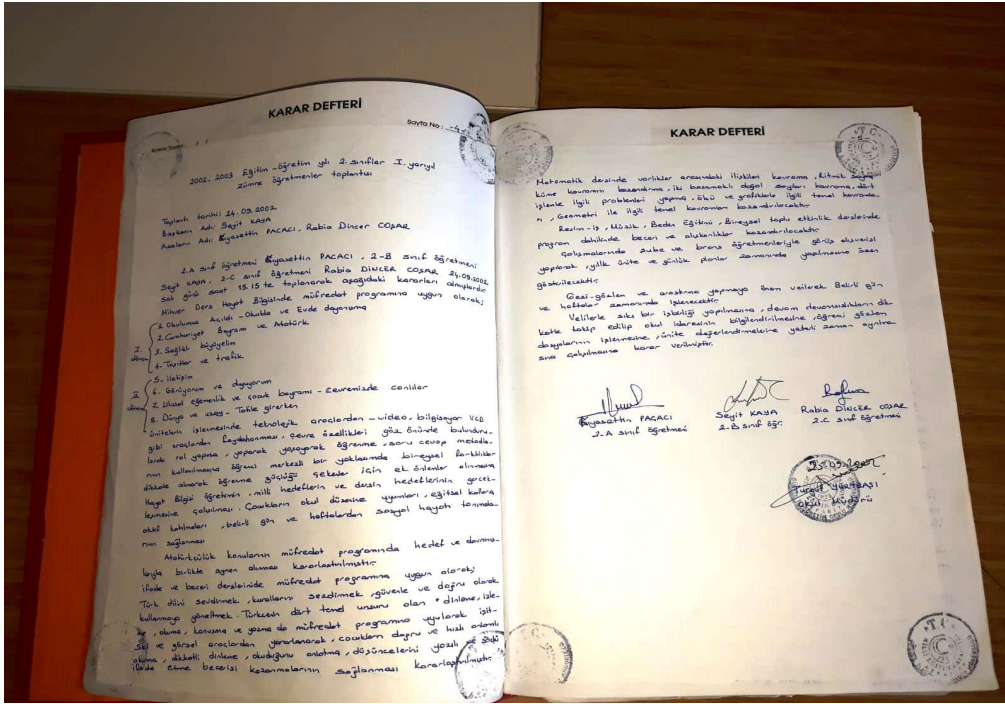 KARAR DEFTERİ
Sayfa No: -4-
2002-2003 Eğitim-öğretim yılı 2. sınıflar I. yarıyıl
zümre öğretmenler toplantısı
Toplantı tarihi: 24.09.2002
Başkanın Adı: Seyit KAYA
Azaların Adı: Gıyasettin PAÇACI, Rabia Dinçer COŞAR
2.A sınıf öğretmeni Gıyasettin PAÇACI, 2-B sınıf öğretmeni
Seyit KAYA, 2-C sınıf öğretmeni Rabia DİNÇER COŞAR 24.09.2002
salı günü saat 15.15 te toplanarak aşağıdaki kararları almışlardır
Mihver Ders Hayat Bilgisinde müfredat programına uygun olarak;
1. Okulumuz Açıldı-Okulda ve Evde dayanışma
2. Cumhuriyet Bayramı ve Atatürk
I. dönem
3. Sağlıklı büyüyelim
4. Taşıtlar ve trafik
5. iletişim
6. Görüyorum ve duyuyorum
II. dönem
7. Ulusal egemenlik ve çocuk bayramı - Çevremizde canlılar
8. Dünya ve uzay - Tatile girerken
ünitelerin işlenmesinde teknolojik araçlardan - video, bilgisayar VCD
gibi araçlardan faydalanması, çevre özellikleri göz önünde bulunduru-
larak rol yapma, yaparak yaşayarak öğrenme, soru cevap metodla-
rının kullanılmasına öğrenci merkezli bir yaklaşımda bireysel farklılıklar
dikkate alınarak öğrenme güçlüğü çekenler için ek önlemler alınmasına
Hayat Bilgisi öğretimin, milli hedeflerin ve dersin hedeflerinin gerçek-
leşmesine çalışılması. Çocukların okul düzenine uyumları, eğitsel kollara
aktif katılmaları, belirli gün ve haftalardan sosyal hayatı tanıma-
rının sağlanması
Atatürkçülük konularının müfredat programında hedef ve davranış-
larıyla birlikte aynen alınması kararlaştırılmıştır.
ifade ve beceri derslerinide müfredat programına uygun olarak;
Türk dilini sevdirmek, kurallarını sezdirmek, güvenle ve doğru olarak
kullanmaya yöneltmek. Türkçenin dört temel unsuru olan * dinleme, izle-
me, okuma, konuşma ve yazma da müfredat programına uyularak işit-
sel ve görsel araçlardan yararlanarak, çocukların doğru ve hızlı anlamlı
okuma, dikkatli dinleme, okuduğunu anlatma, düşüncelerini yazılı ve sözlü
ifade etme becerisi kazanmalarının sağlanması kararlaştırılmıştır.
KARAR DEFTERİ
Matematik dersinde varlıklar arasındaki ilişkileri kavrama, Ritmik sayma
küme kavramını kazandırma, iki basamaklı doğal sayıları kavrama, dört
işlemle ilgili problemleri yapma, ölçü ve grafiklerle ilgili temel kavramla-
rı, Geometri ile ilgili temel kavramları kazandırılacaktır.
Resim-iş, Müzik, Beden Eğitimi, Bireysel toplu etkinlik derslerinde
program dahilinde beceri ve alışkanlıklar kazandırılacaktır.
Çalışmalarında şube ve branş öğretmenleriyle görüş alışverişi
yapılarak, yıllık ünite ve günlük planlar zamanında yapılmasına özen
gösterilecektir.
Gezi-gözlem ve araştırma yapmaya önem verilerek Belirli gün
ve haftalar zamanında işlenecektir.
Velilerle sıkı bir işbirliği yapılmasına, devam devamsızlıkların dik-
katle takip edilip okul idaresinin bilgilendirilmesine, öğrenci gözlem
dosyalarının işlenmesine, ünite değerlendirmelerine yeterli zaman ayrılma-
sına çalışılmasına karar verilmiştir.
Gıyasettin PAÇACI
2-A sınıf öğretmeni
Seyit KAYA
2-B sınıf öğr.
Rabia DİNÇER COŞAR
2-C sınıf öğretmeni
25.09.2002
Turgut
Okul Müdürü
T.C.
T.C.